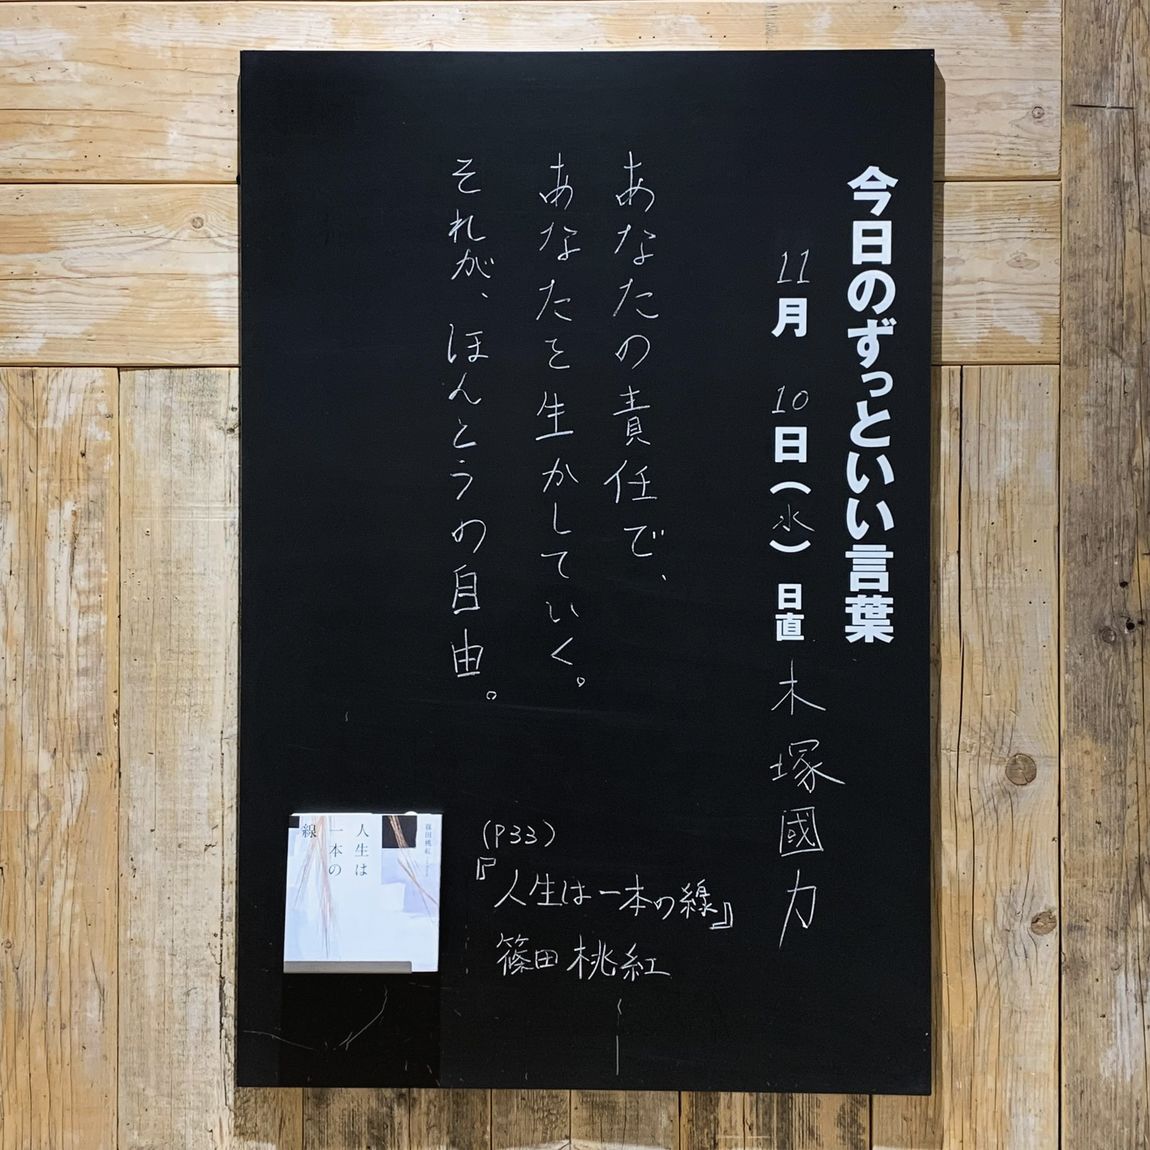 今日のずっといい言葉
11月 10日(水) 日直 木塚國力
あなたの責任で、
あなたを生かしていく。
それが、ほんとうの自由。
(P33)
『人生は一本の線』
篠田桃紅
篠田桃紅
人生は
一本の
線